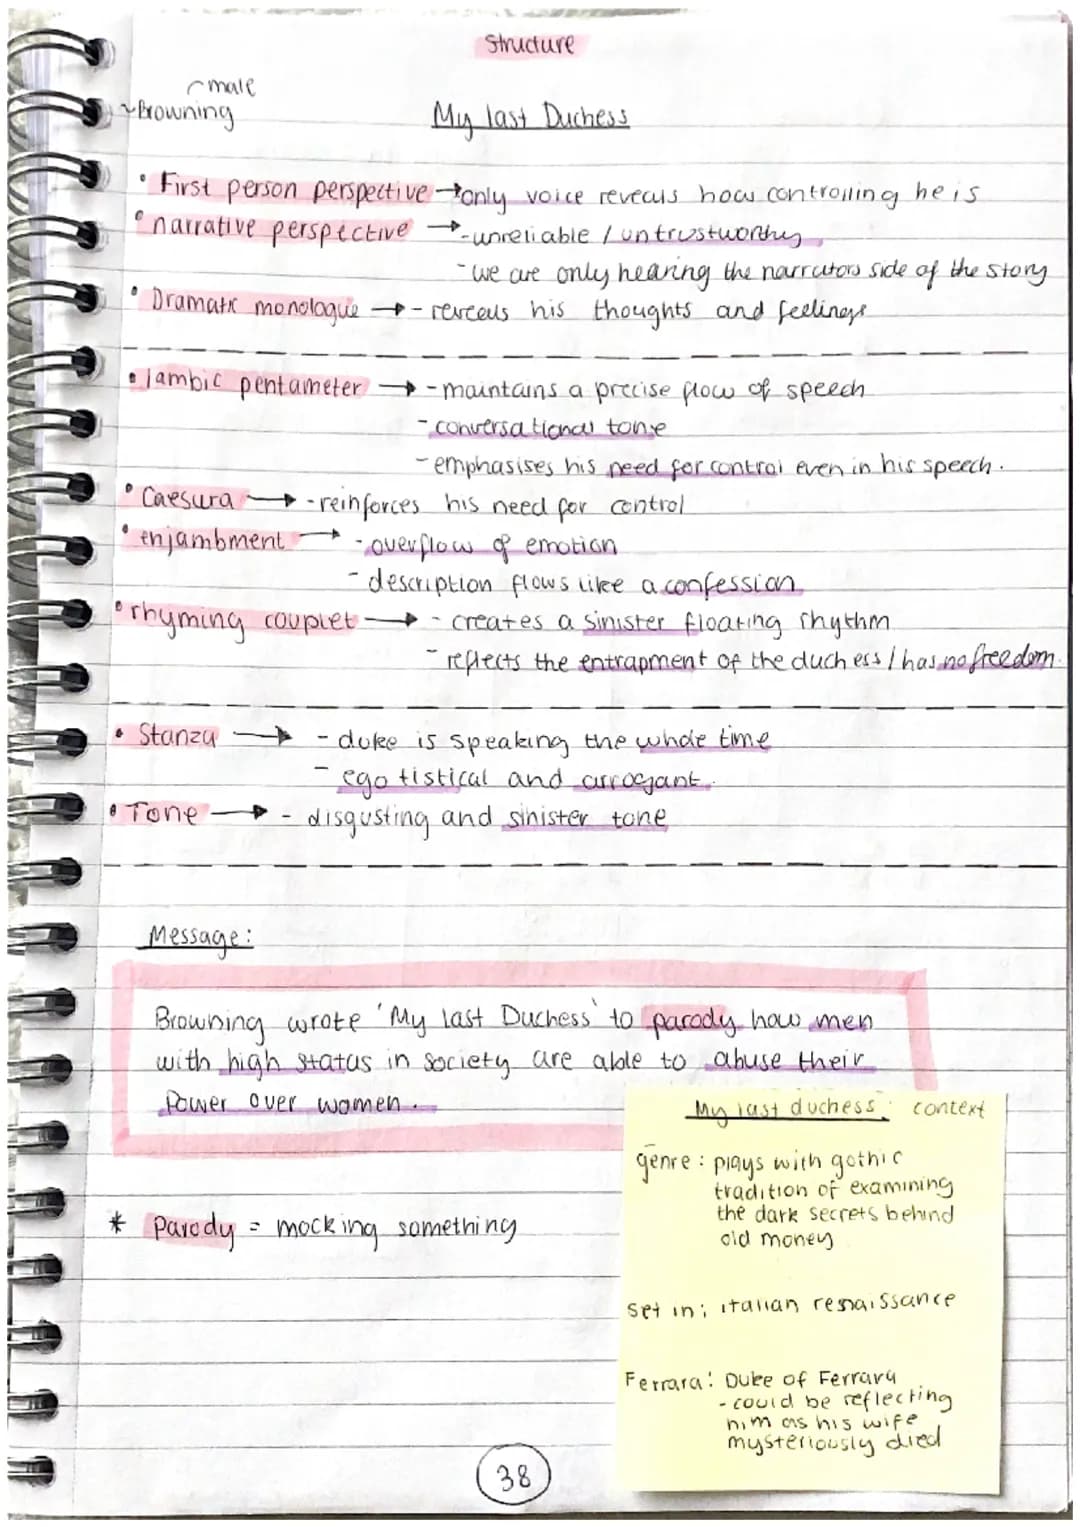 Structure
male
~Browning
My last Duchess
• First person perspective → only voice reveals how controlling he is
• narrative perspective → - unreliable / untrustworthy
- we are only hearing the narrators side of the story
• Dramatic monologue → - reveals his thoughts and feelings
• Iambic pentameter → - maintains a precise flow of speech
- conversational tone
- emphasises his need for control even in his speech.
• Caesura → - reinforces his need for control
• enjambment → - overflow of emotion
- description flows like a confession
• rhyming couplet → - creates a sinister floating rhythm
- reflects the entrapment of the duchess / has no freedom.
• Stanza → - duke is speaking the whole time
- egotistical and arrogant.
• Tone → - disgusting and sinister tone
Message:
Browning wrote 'My last Duchess' to parody how men
with high status in society are able to abuse their
power over women.
My last duchess: context
genre: plays with gothic
tradition of examining
the dark secrets behind
old money
set in: italian renaissance
Ferrara: Duke of Ferrara
- could be reflecting
him as his wife
mysteriously died
* parody = mocking something
38